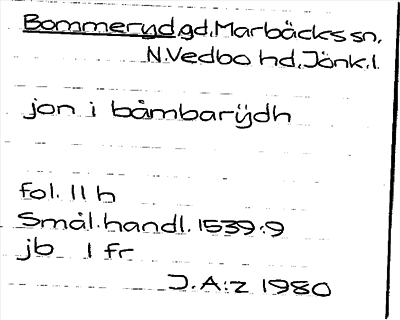 Bommeryd gd. Marbäcks sn,
N. Vedbo hd, Jönk. l.
jon i båmbarÿdh
fol. 11 h
Smål. handl. 1539:9
jb 1 fr
J.A:z 1980